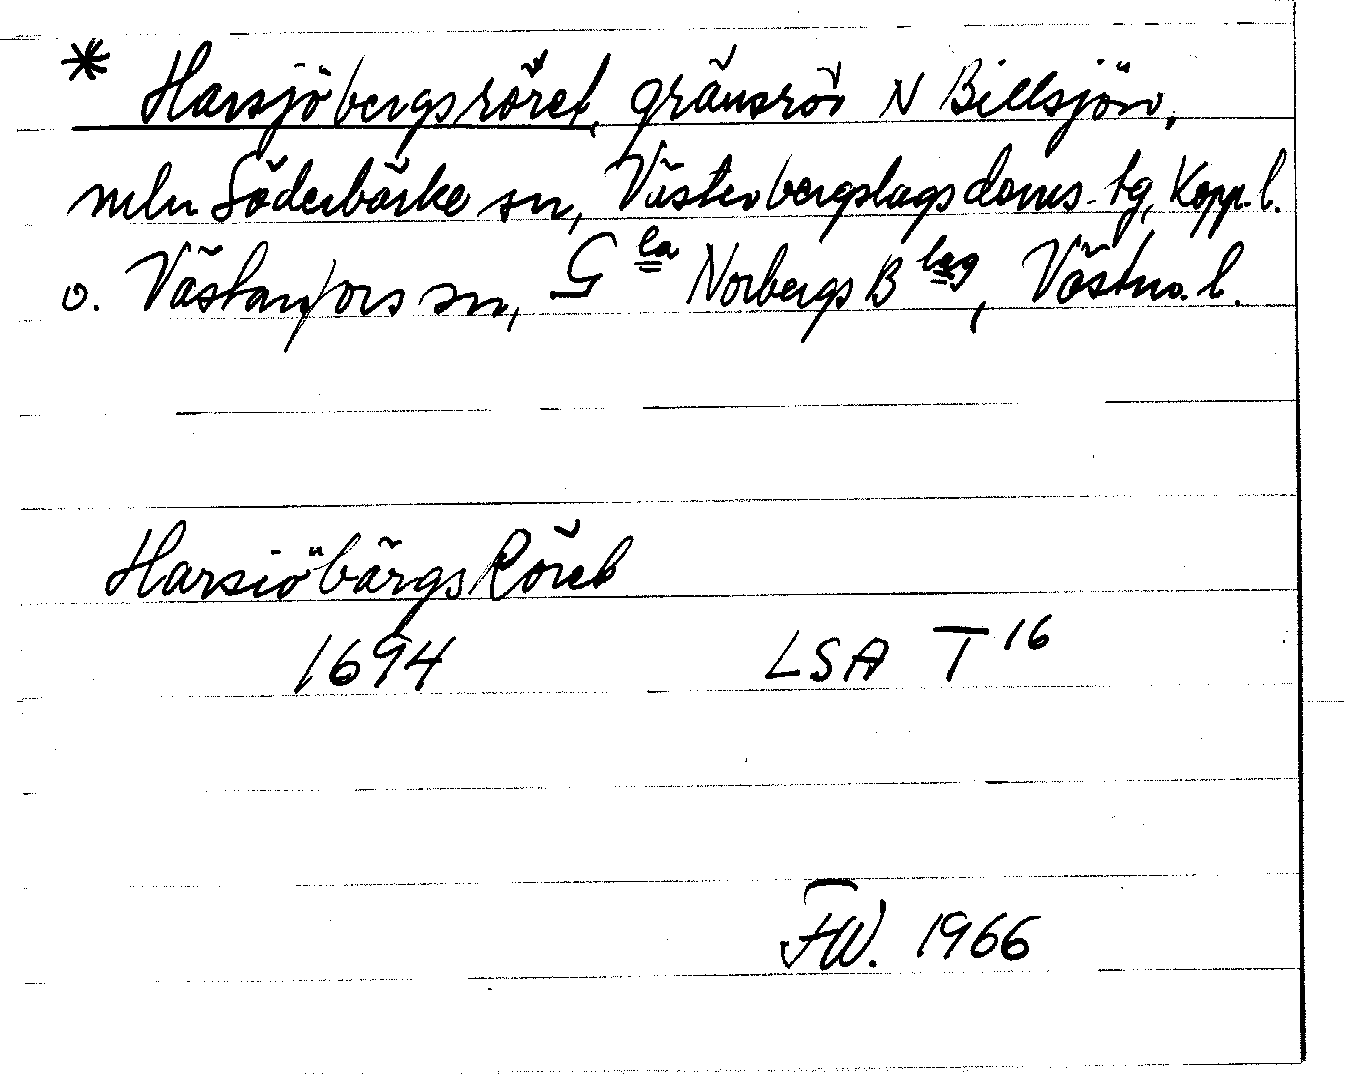 * Harsjöbergsröret, gränsrör N Billsjön,
mln Söderbärke sn, Västerbergslags doms. tg, Kopp. l.
o. Västanfors sn, Gla Norbergs Blag, Västm. l.
Harsiöbärgs Röret
1694 LSA T16
FW. 1966